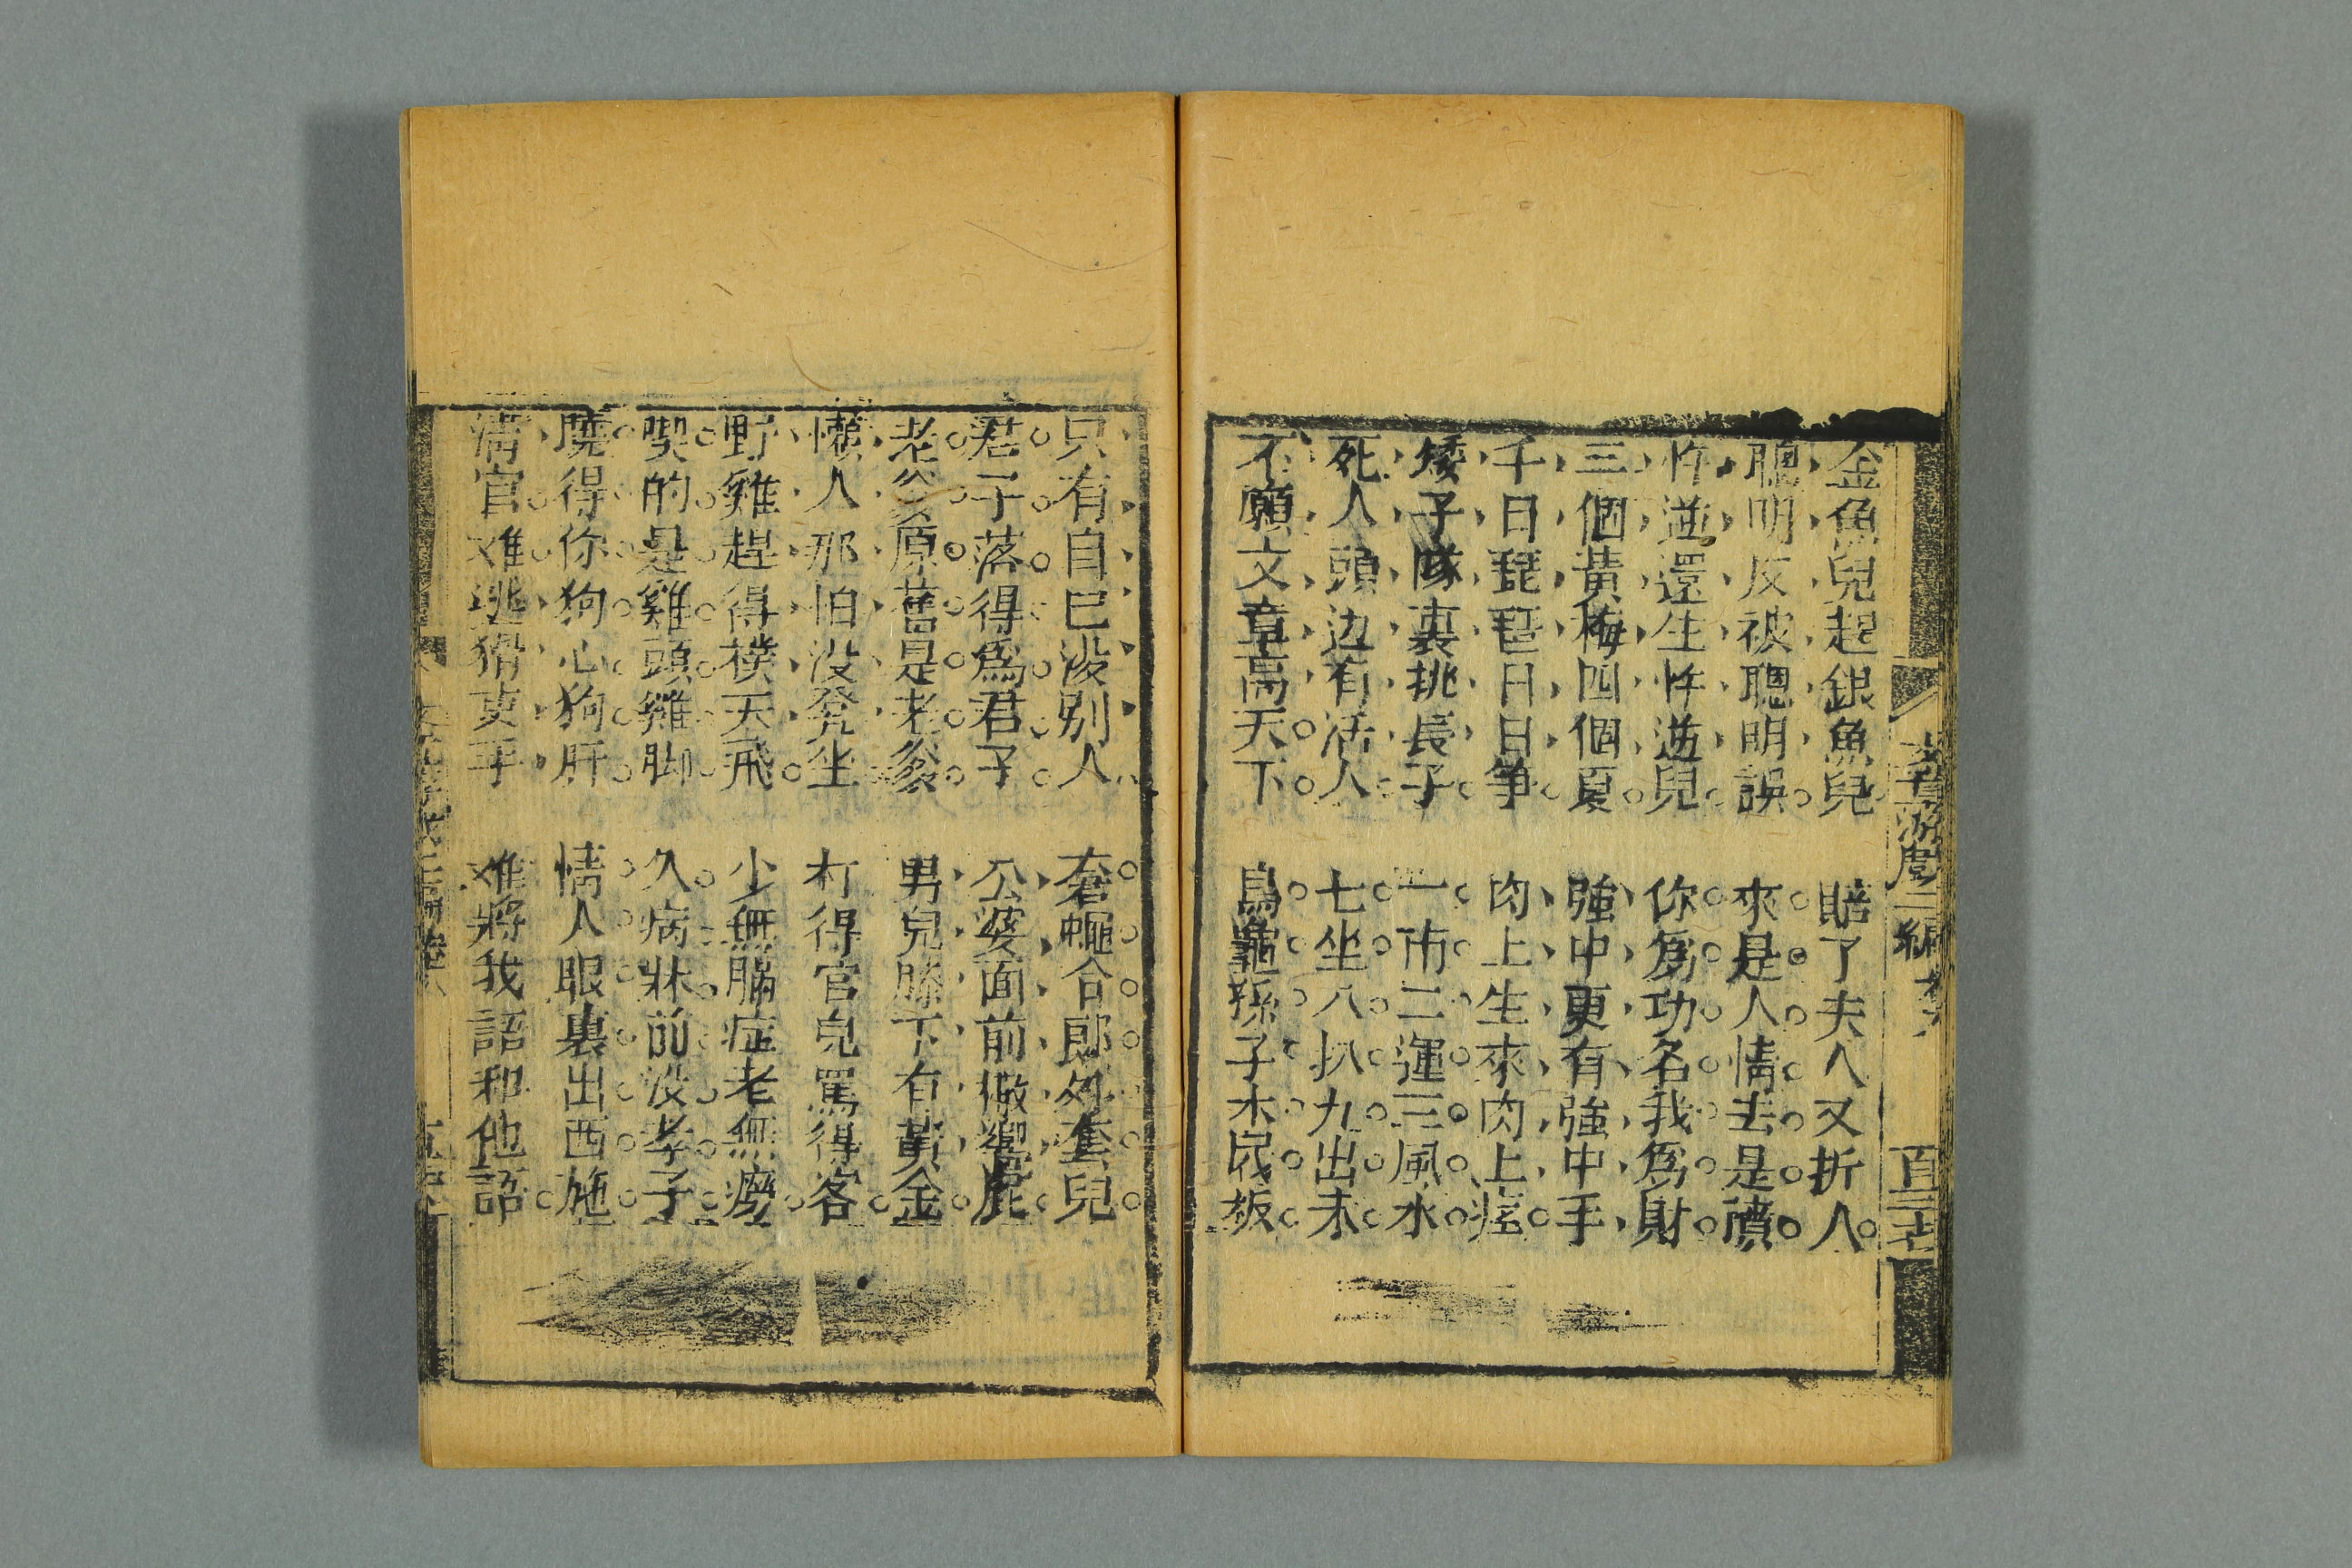 金魚兒起銀魚兒 賠了夫人又折人
聰明反被聰明誤 來是人情去是債
忤逆還生忤逆兒 你爲功名我爲財
三個黃梅四個夏 強中更有強中手
千日琵琶日日箏 肉上生來肉上
矮子隊裏挑長子 一命二運三風水
死人頭边有活人 七坐八扒九出
不願文章高天下 烏龜孫子木民板
只有自己沒別人 蒼蠅合郎外隻兒
君子落得爲君子 公婆面前做
老爹原舊是老爹 男兒膝下有黃金
懶人那怕沒凳坐 打得官兒罵得客
野雞趕得撲天飛 少無腦症老無癆
喫的是雞頭雞脚 久病牀前沒孝子
曉得你狗心狗肝 情人眼裏出西施
清官难逃猾吏手 难將我語和他語